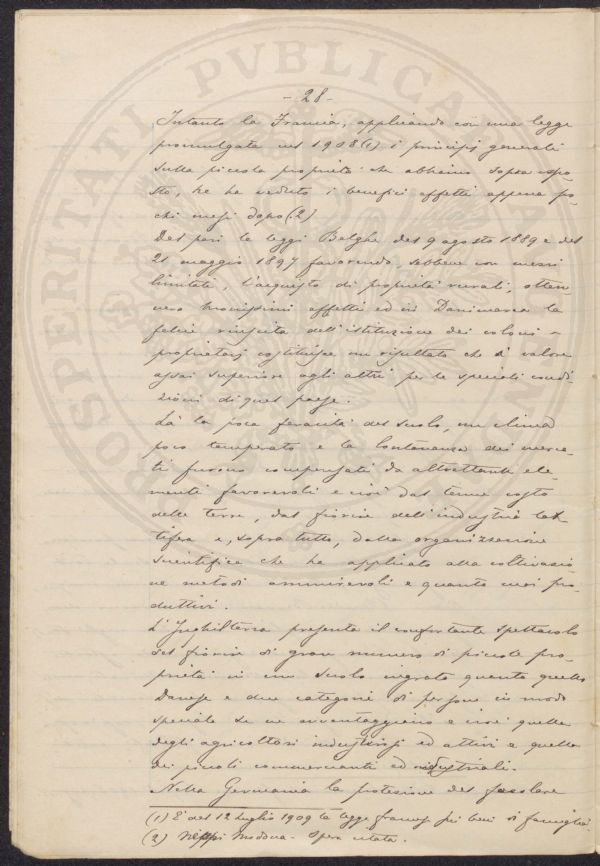 - 28 -
Intanto la Francia, applicando con una legge
promulgata nel 1908 (1) i principj generali
sulla piccola proprietà che abbiamo sopra espo-
sto, ne ha veduto i benefici effetti appena po-
chi mesi dopo (2)
Del pari le leggi Belghe del 9 agosto 1889 e del
21 maggio 1897 favorendo, sebbene con mezzi
limitati, l'acquisto di proprietà rurali, otten-
nero buonissimi effetti ed in Danimarca la
felice riuscita dell'istituzione dei coloni -
proprietarj costituisce un risultato che à valore
assai superiore agli altri per le speciali condi-
zioni di quel paese.
Là la poca feracità del suolo, un clima
poco temperato e la lontananza dei merca-
ti furono compensati da altrettanti ele-
menti favorevoli e cioè dal tenue costo
delle terre, dal fiorire dell'industria lat-
tifera e, sopra tutto, dalla organizzazione
scientifica che ha applicato alla coltivazio-
ne metodi ammirevoli e quanto mai pro-
duttivi.
L'Inghilterra presenta il confortante spettacolo
del fiorire di gran numero di piccole pro-
prietà in un suolo ingrato quanto quello
Danese e due categorie di persone in modo
speciale se ne avvantaggiano e cioè quella
degli agricoltori industriosi ed attivi e quella
dei piccoli commercianti ed industriali.
Nella Germania la protezione del focolare
(1) È del 12 Luglio 1909 la legge francese sui beni di famiglia
(2) Modona - Opera citata.
PROSPERITATI PVBLICAE